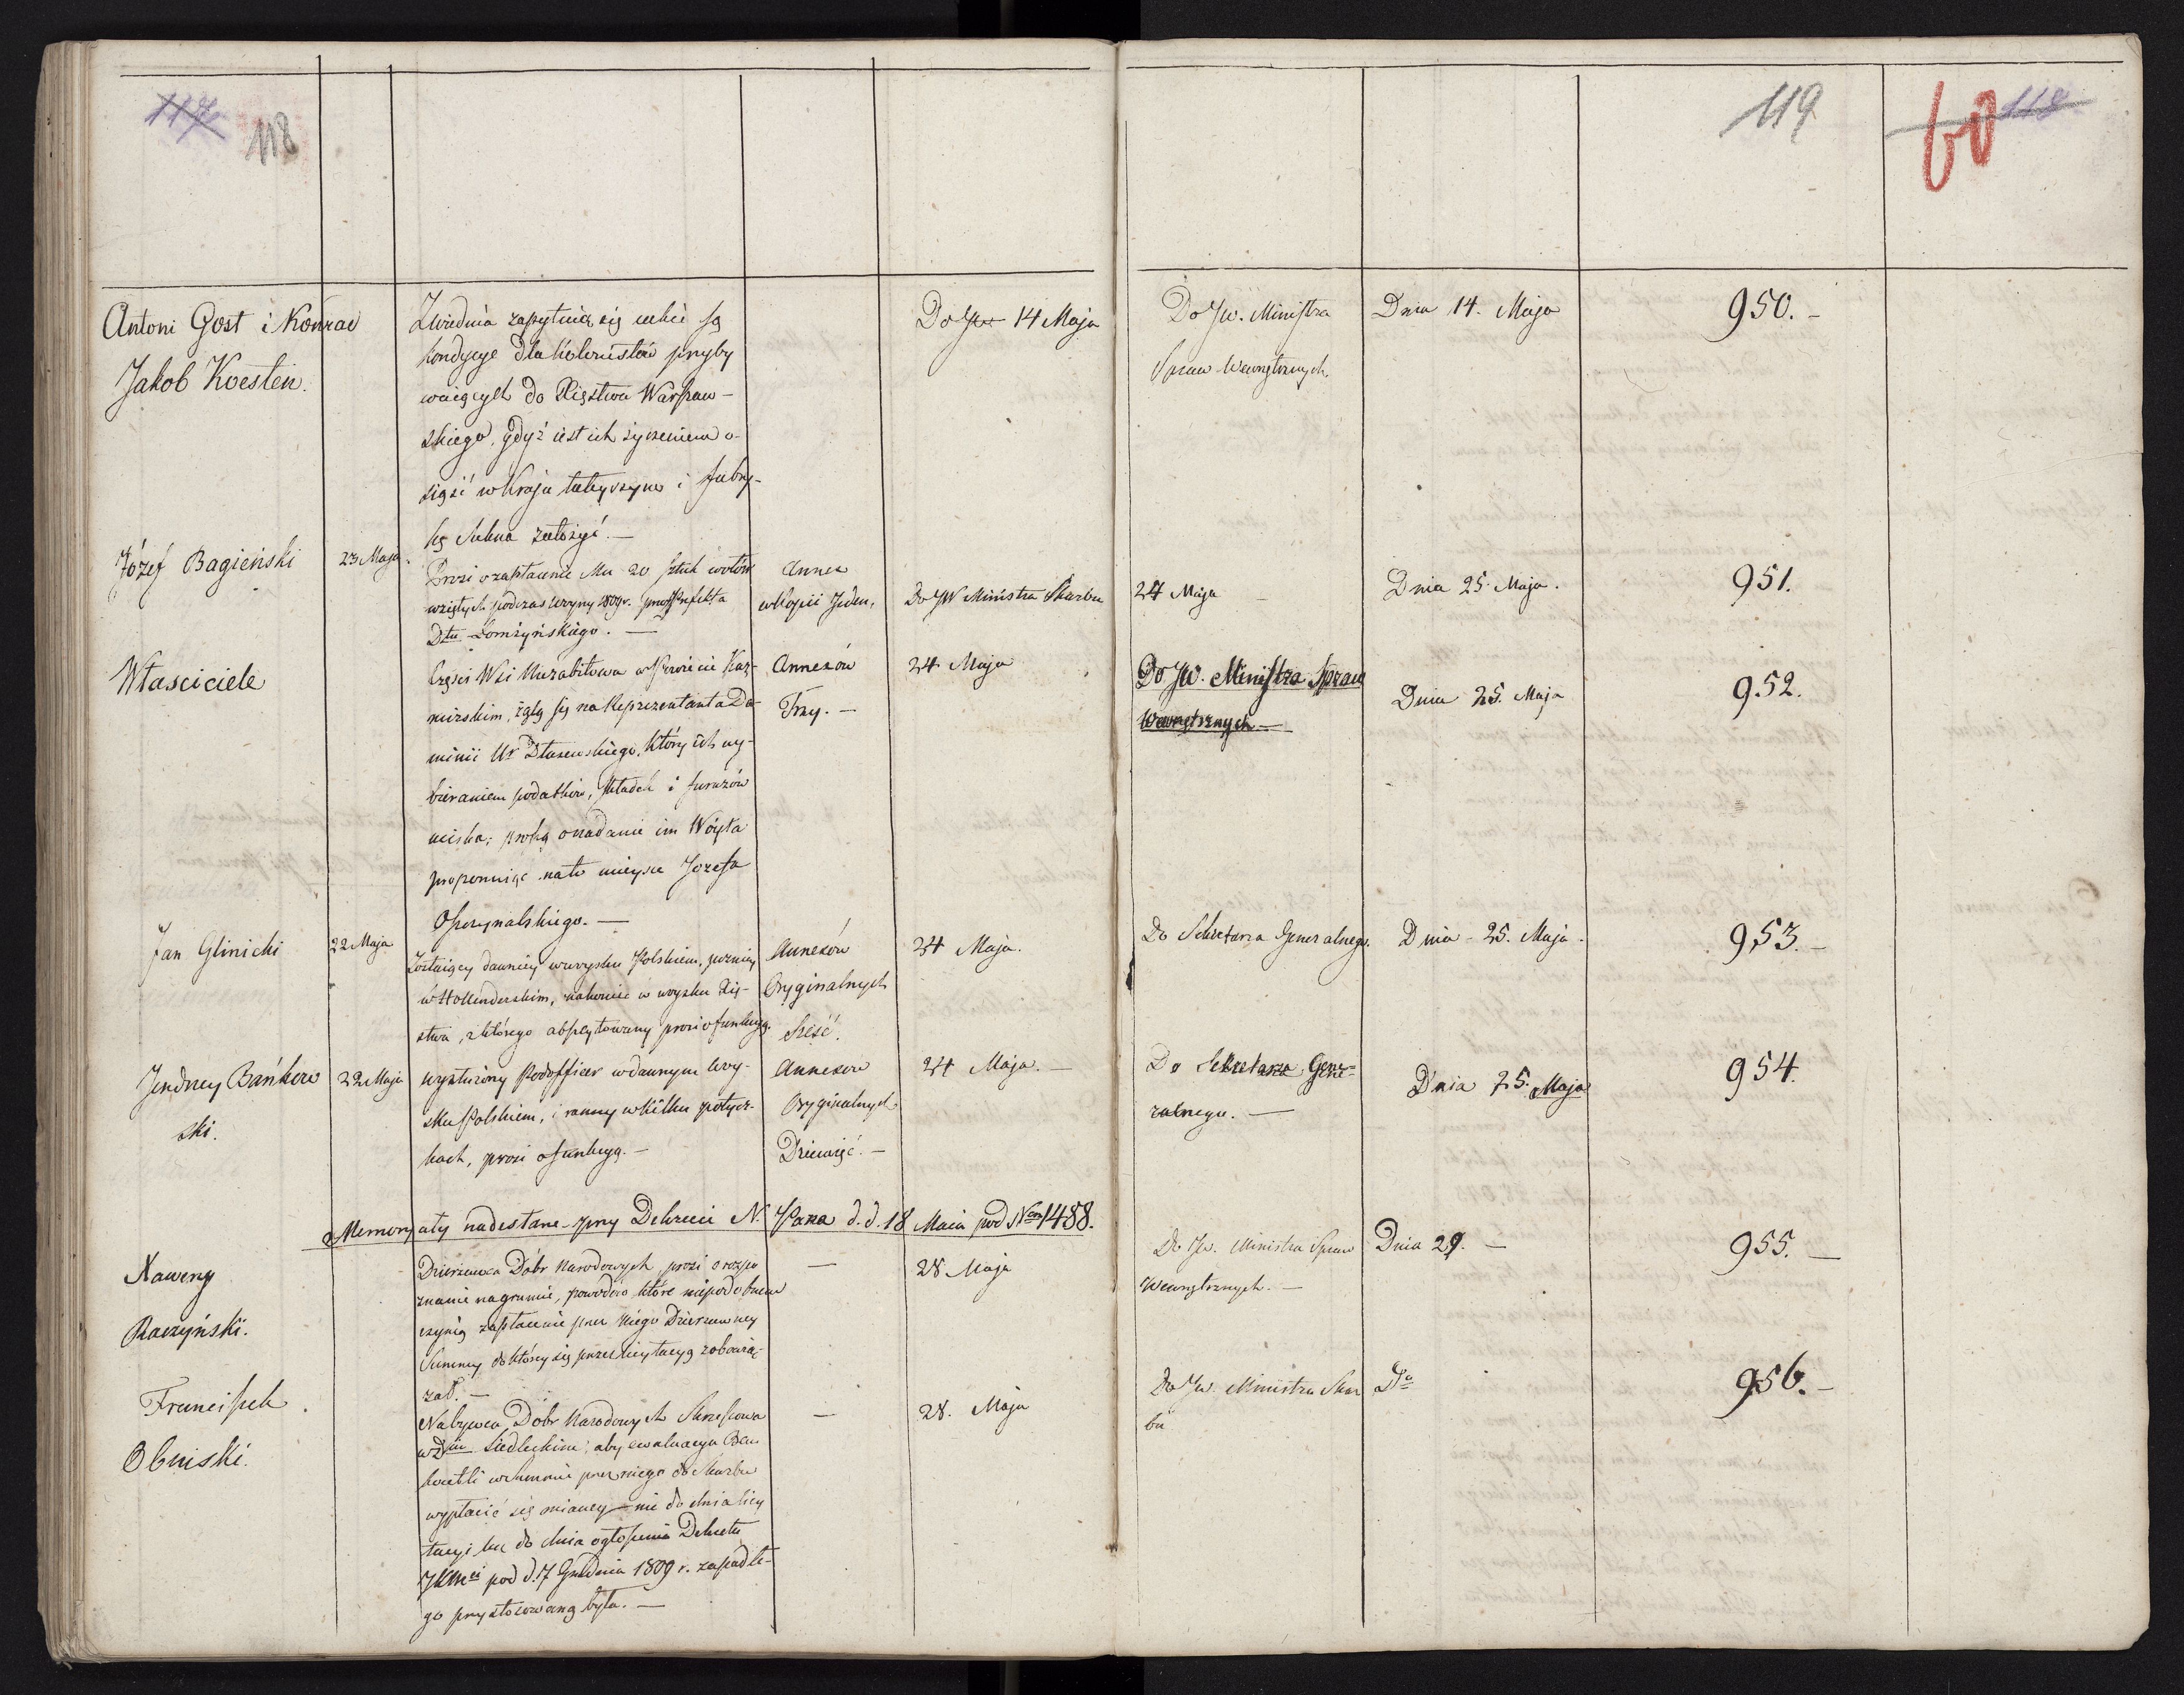 117
118
119
60 118
Antoni Gost i Konrad
Jakob Koesten.
Zwiednia zapytuią się iakie są
kondycye dla kolonistów przyby
waiących do Xięstwa Warszaw-
skiego, gdyż iest ich życzeniem o-
siąść w kraju tuteyszym i fabry-
kę sukna założyć. —
Do JW 14 Maja
Do JW. Ministra
Spraw Wewnętrznych
Dnia 14. Maja
950. -
Józef Bagieński
23 Maja.
Prosi o zapłacenie Mu 20 sztuk wołów
wziętych podczas woyny 1809 r. przez Prefekta
Dtu Łomżyńskiego. —
Annex
w kopii Jeden,
Do JW Ministra Skarbu
24 Maja —
Dnia 25. Maja.
951.
Własciciele
Części Wsi w Powiecie Kaź-
mirskim, żalą się na Reprezentanta Do-
minii Ur Dłużewskiego, który ich wy-
bieraniem podatków, składek i furażów
uciska; proszą o nadanie im Wóyta
proponuiąc na to mieysce Józefa
Annexów
Trzy. —
24 Maja
Do JW. Ministra Spraw
Wewnętrznych —
Dnia 25. Maja
952.
Jan Glinicki
22 Maja
Zostaiący dawniey w woysku Polskiem, pozniey
w Hollenderskim, nakoniec w woysku Xię-
stwa, z którego abszytowany prosi o funkcyą.
Annexów
Oryginalnych
Sześć.
24 Maja.
Do Sekretarza Generalnego.
Dnia - 25. Maja.
953. -
Jendrzey Bańkow
ski.
22 Maja
wysłużony Podofficer w dawnym woy-
sku Polskiem, i ranny w kilku potycz-
kach, prosi o funkcyą. -
Annexow
Oryginalnych
Dziewięć. -
24 Maja. -
Do Sekretarza Gene-
ralnego. —
Dnia 25. Maja
954.
Memoryały nadesłane przy Dekrecie N. Pana d. d. 18 Maia pod Nem 1488.
Xawery
Raczyński.
Dzierzawca Dóbr Narodowych, prosi o rozpo
znanie na gruncie, powodów które niepodobnem
czynią zapłacenie przez niego Dzierzawney
Summy, do którey się przez licytacyą zobowią-
zał. —
—
28 Maja
Do JW. Ministra Spraw
Wewnętrznych. —
Dnia 29. —
955. —
Franciszek
Obniski.
Nabywca Dóbr Narodowych
w Dcie Siedleckim; aby ewaluacya Ban
knotli w Summie przez niego do Skarbu
wypłacić się maiącey - nie do dnia licy
tacyi lecz do dnia ogłoszenia Dekretu
JKMci pod d. 7 Grudnia 1809 r. zapadłe-
go przystosowaną była. —
—
28. Maja
Do JW. Ministra Skar
bu
Do
956. -